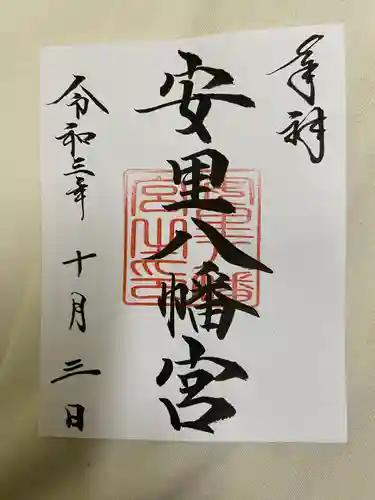 奉拝
安里八幡宮
令和三年 十月 三日